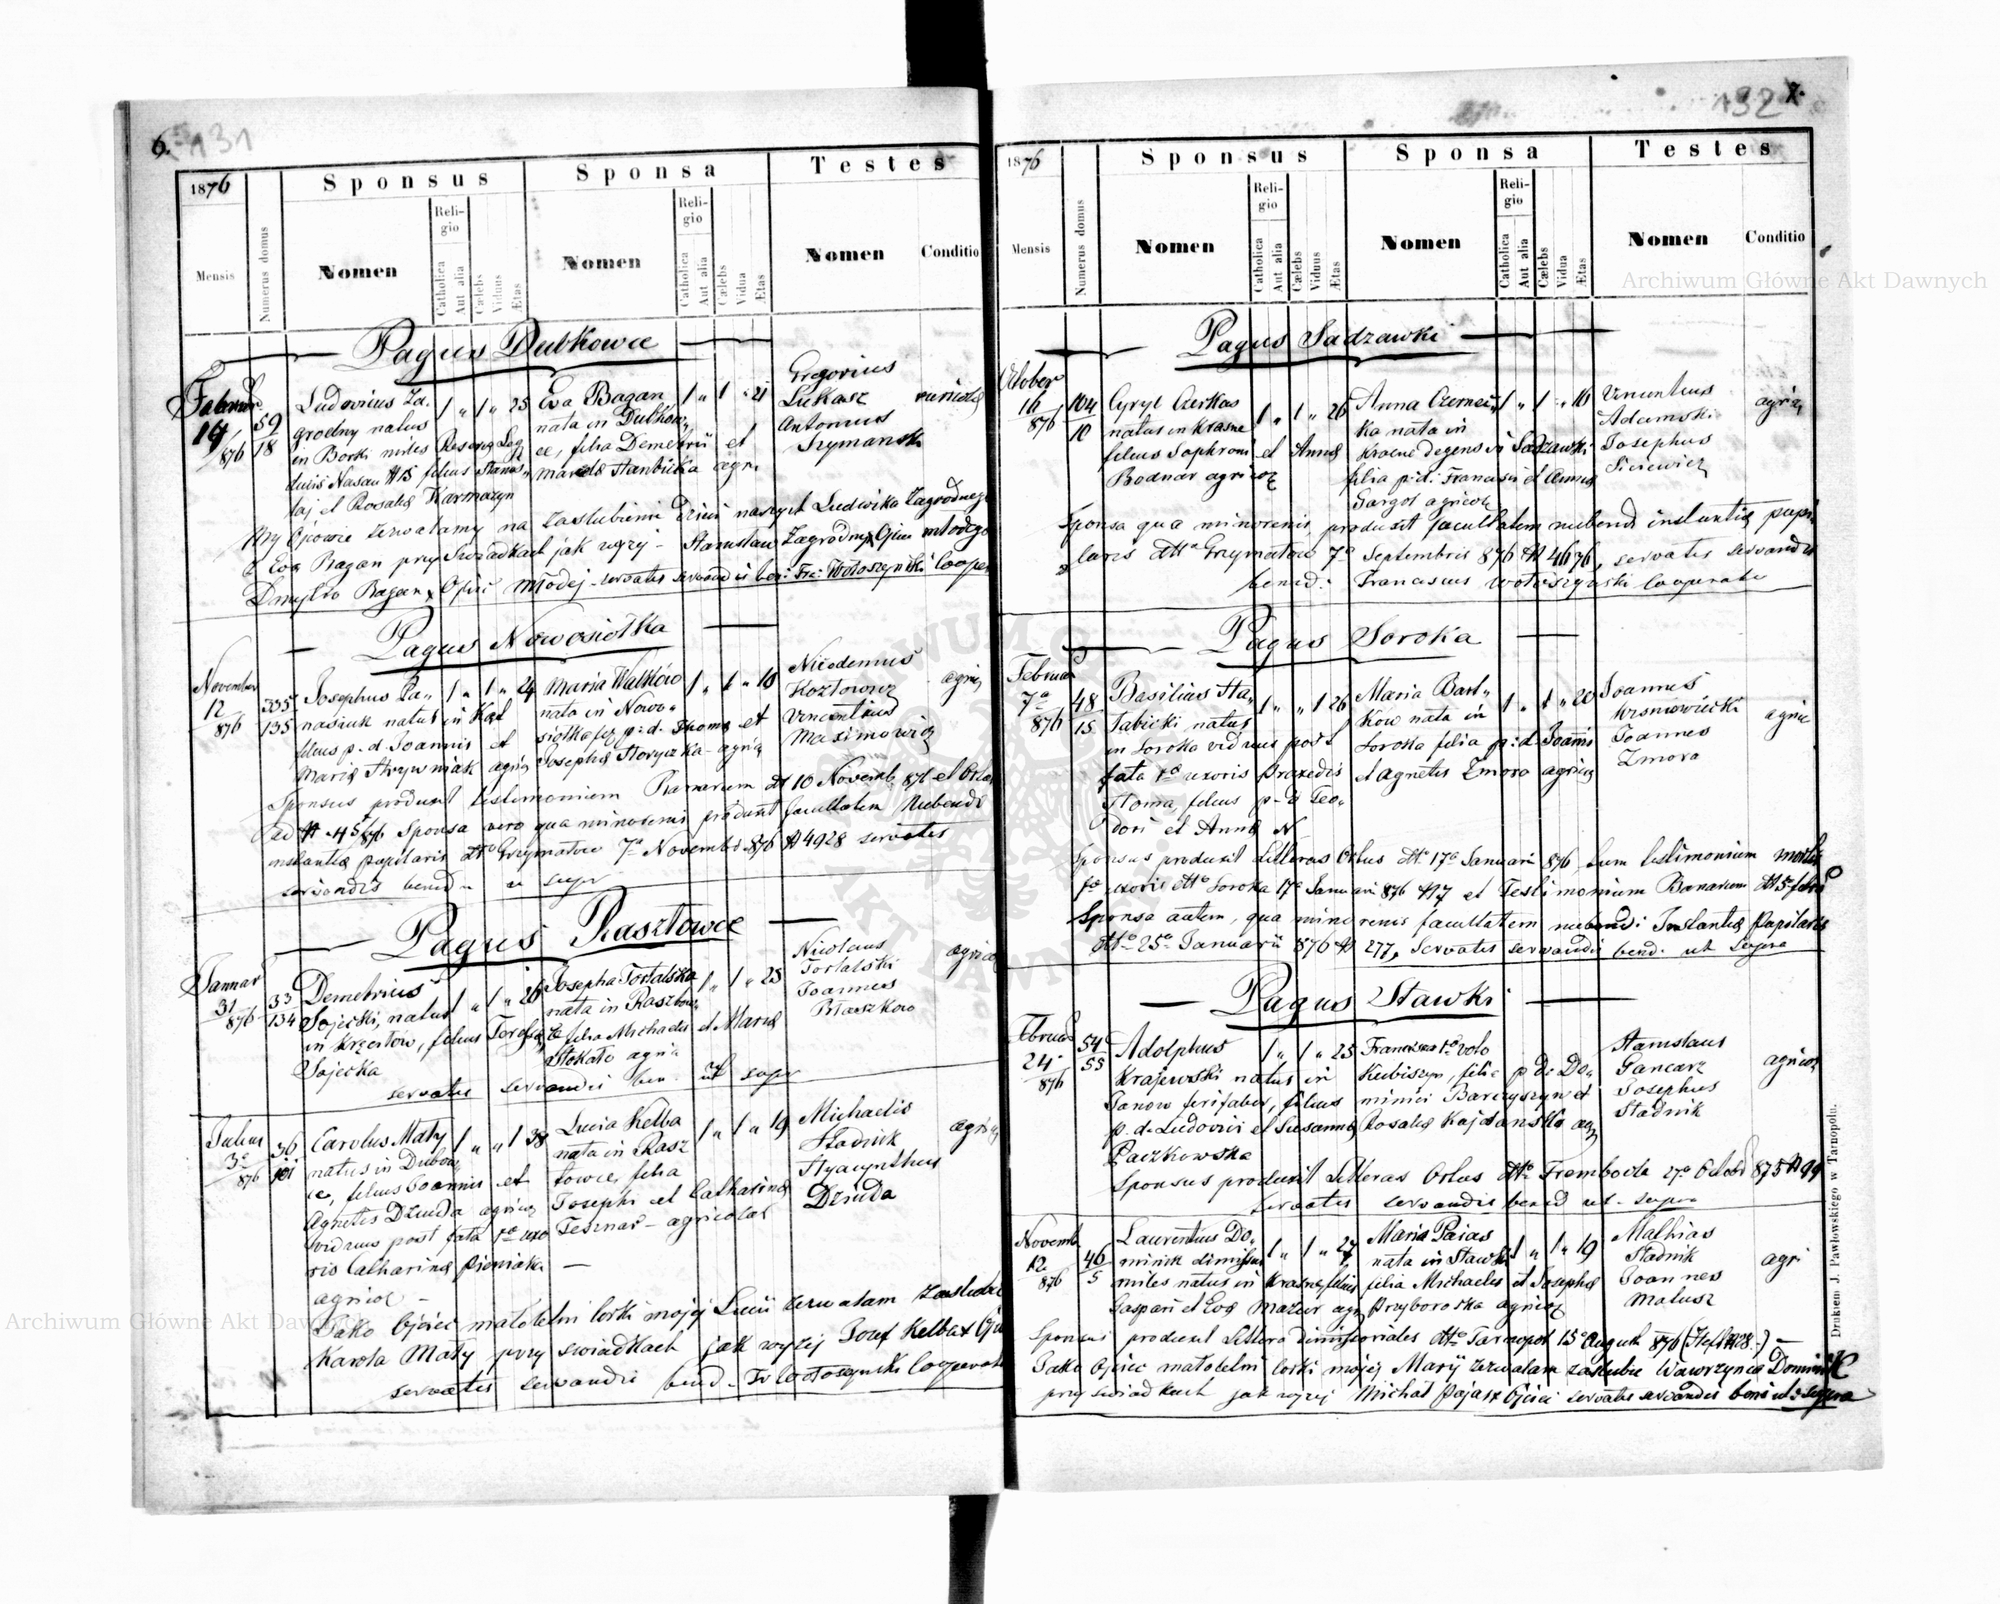 6. 131
1876
Sponsus Sponsa Testes
Mensis
Numerus domus
Nomen
Religio
Catholica
Aut alia
Cælebs
Viduus
Ætas
Nomen
Religio
Catholica
Aut alia
Cælebs
Vidua
Ætas
Nomen
Conditio
Pagus Dubkowce
19/876 59/18
Ludovicus Za-
grodny natus
in Borki miles Reserva
filius
taj et Rosaliæ Karmazyn
1 " 1 " 25
Eva Bagan
nata in Dubkow-
ce, filia Demetrii et
1 " 1 " 21
Gregorius
Lukasz
Antonius
Szymański
My Ojcowie zezwalamy na zaslubienie Dzieci naszych Ludwika Zagrodnego
z Eva Bagan przy Swiadkach jak wyzy - Stanisław Zagrodny x Ojciec młodego
Dmytro Bagan x Ojciec Młodej - servatis servandis ben: Fr: Wołoszyński Cooper
Pagus Nowosiołka
November
12/876 335/135
Josephus Pa-
nasiuk natus in Kąt
filius p. d. Joannis et
Mariæ Hrywniak agric
1 " 1 " 24
Maria Walków
nata in Nowo-
siołka fil. p: d. Thomæ et
Josephæ agric
1 " 1 " 18
Nicodemus
Kozłowicz
Vincentius
Maximowicz
agric
Sponsus produxit testimonium Bannorum dto 10 Novemb 876 et Ortus
Sponsa vero qua minorenis produxit facultatem Nubendi
instantiæ pupilaris dto Grzymałow 7a Novembr 876 N 4928 servatis
servandis bened. ut supr
Pagus Rasztowce
Januar
31/876 33/134
Demetrius
Sojecki, natus
in Kręciłow, filius
Sojecka
1 " 1 " 26
Josepha Tostalska
nata in Rasztow-
ce filia Michaelis et Mariæ
agric
1 " 1 " 25
Nicolaus
Tostalski
Joannes
Błaszkow
agricol
servatis servandis ben. ut supr
Julius
3a/876 36/101
Carolus Mały
natus in Dubow-
ce, filius Joannis et
Agnetis Dziuda agric
viduus post fata 1a uxo
ris Catharinæ Pieniak
agricol -
1 " " 1 38
Lucia Kelba
nata in Rasz
towce filia
Josephi et Catharinæ
Tesznar - agricolæ
1 " 1 " 19
Michaelis
Stadnik
Hyacynthus
Dziuda
agric
Jako Ojciec małoletni Corki mojej Lucii zezwalam zaslubic
Karola Mały przy swiadkach jak wyzej Józef Kelba x Ojc
servatis servandis bened - Fr Wołoszyński Cooperator
132
1876
Sponsus Sponsa Testes
Mensis
Numerus domus
Nomen
Religio
Catholica
Aut alia
Cælebs
Viduus
Ætas
Nomen
Religio
Catholica
Aut alia
Cælebs
Vidua
Ætas
Nomen
Conditio
Pagus Sadzawki
October
16/876 104/10
Cyryl Czerkas
natus in Krasne
filius Sophroni et Annæ
Bodnar agricol
1 " 1 " 26
Anna Czerneć-
ka nata in
Krasne degens in Sadzawki
filia p. d. Francisci et Annæ
Gargol agricol
1 " 1 " 16
Vincentius
Adamski
Josephus
Sieiewicz
agric
Sponsa qua minorenis, produxit facultatem nubendi instantiæ pupil
laris dto Grzymałow 7a Septembris 876 N 4636, servatis servandis
bened: Franciscus Wołoszyński Cooperator
Pagus Soroka
Februar
7a/876 48/15
Basilius Ha-
labicki natus
in Soroka viduus post
fata 1a uxoris Praxedis
Homa, filius p. d Teo-
dori et Annæ N
1 " " 1 26
Maria Bart-
kow nata in
Soroka filia p: d. Joannis
et Agnetis Zmora agric
1 " 1 " 20
Joannes
Wisniowiecki
Joannes
Zmora
agric
Sponsus produxit Litteras Ortus dto 17a Januarii 876, tum testimonium mortis
1æ uxoris dto Soroka 17a Januarii 876 N 7 et Testimonium Bannorum
Sponsa autem, qua minorenis facultatem nubendi Instantiæ Pupilaris
dto 25a Januarii 876 N 277, servatis servandis bened. ut supra
Pagus Stawki
Februar
24/876 54/55
Adolphus
Krajewski natus in
Janow ferifaber, filius
p. d. Ludovici et Susannæ
Paczkowska
1 " 1 " 25
Francisca 1o voto
Kubiszyn, filia p. d. Do-
minici Barczyszyn et
Rosaliæ Kajdańska agr
Stanislaus
Gancarz
Josephus
Stadnik
agricol
Sponsus produxit Litteras Ortus dto Trembowla 27a Octobr 875 N 99
servatis servandis bened ut - supra
Novemb
12/876 46/5
Laurentius Do-
minik dimissus
miles natus in Krasne filius
Gaspari et Evæ Mazur agr
1 " 1 " 27
Maria Paias
nata in Stawki
filia Michaelis et Josephæ
Przyborowska agricol
1 " 1 " 19
Mathias
Stadnik
Joannes
Matusz
agri
Sponsus produxit Littera dimissoriales dto Tarnopol 15a Augusti 876
Jako Ojciec małoletni Corki mojej Maryi zezwalam zaslubic Wawrzynca Dominik
przy swiadkach jak wyzej Michał Pajasz Ojciec servatis servandis bened ut: supra
Drukiem J. Pawłowskiego w Tarnopolu.
Archiwum Główne Akt Dawnych
Archiwum Główne Akt Dawnych